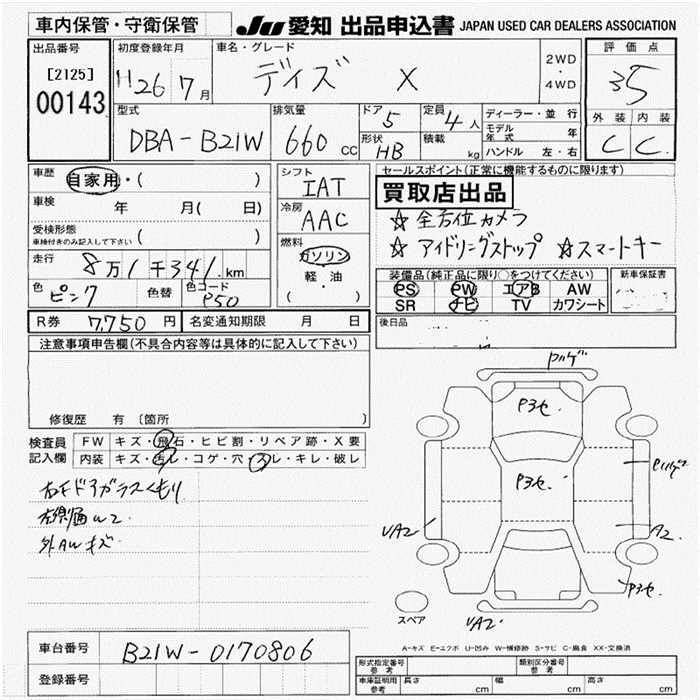 車内保管・守衛保管
JU 愛知 出品申込書 JAPAN USED CAR DEALERS ASSOCIATION
出品番号
[2125]
00143
初度登録年月
H26 7月
車名・グレード
デイズ X
2WD
・
4WD
評価点
3.5
外装 内装
C C
型式
DBA-B21W
排気量
660 cc
ドア 5
形状 HB
定員 4人
積載 kg
ディーラー・並行
モデル年式 年
ハンドル 左・右
車歴 自家用・( )
車検 年 月( 日)
受検形態
車検付きのみ記入して下さい ( )
走行 8万1千341km
色 ピンク 色替 色コード P50
シフト IAT
冷房 AAC
燃料
ガソリン
軽・油
( )
セールスポイント(正常に機能するものに限ります)
買取店出品
☆全方位カメラ
☆アイドリングストップ ☆スマートキー
装備品(純正品に限り○をつけてください)
PS PW エアB AW
SR ナビ TV カワシート
新車保証書
R券 7,750円 名変通知期限 月 日
後日品
注意事項申告欄(不具合内容等は具体的に記入して下さい)
修復歴 有 〔箇所 〕
検査員記入欄
FW キズ・飛石・ヒビ割・リペア跡・X要
内装 キズ・汚レ・コゲ・穴・スレ・キレ・破レ
右Fドアガラスくもり
左側面W2
外AWキズ
Pハゲ
P3セ.
P3セ.
Pハゲ
UA2
A2
P3セ.
UA2
スペア
A-キズ E-エクボ U-凹み W-補修跡 S-サビ C-腐食 XX-交換済
車台番号 B21W-0170806
登録番号
形式指定番号 参考
類別区分番号 参考
車庫証明用 参考 長さ cm 幅 cm 高さ cm